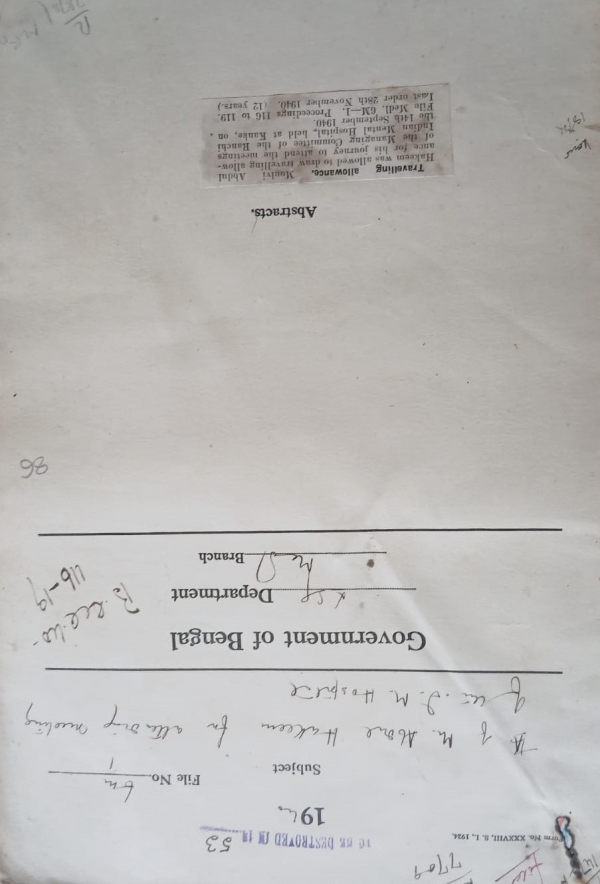 Form No. XXXVIII, S. I., 1924.
TO BE DESTROYED IN 19 53
1940
File No. 6M
1
Subject
TA of Mr. Abdul Hakeem for attending meeting
of the I. M. Hospital
Government of Bengal
Department
Med Branch
B. Dec. 40
116-19
86
Abstracts.
Travelling allowance. Moulvi Abdul
Hakeem was allowed to draw travelling allow-
ance for his journey to attend the meetings
of the Managing Committee of the Ranchi
Indian Mental Hospital, held at Kanke, on
the 14th September 1940.
File Medl. 6M—1. Proceedings 116 to 119.
Last order 28th November 1940. (12 years.)